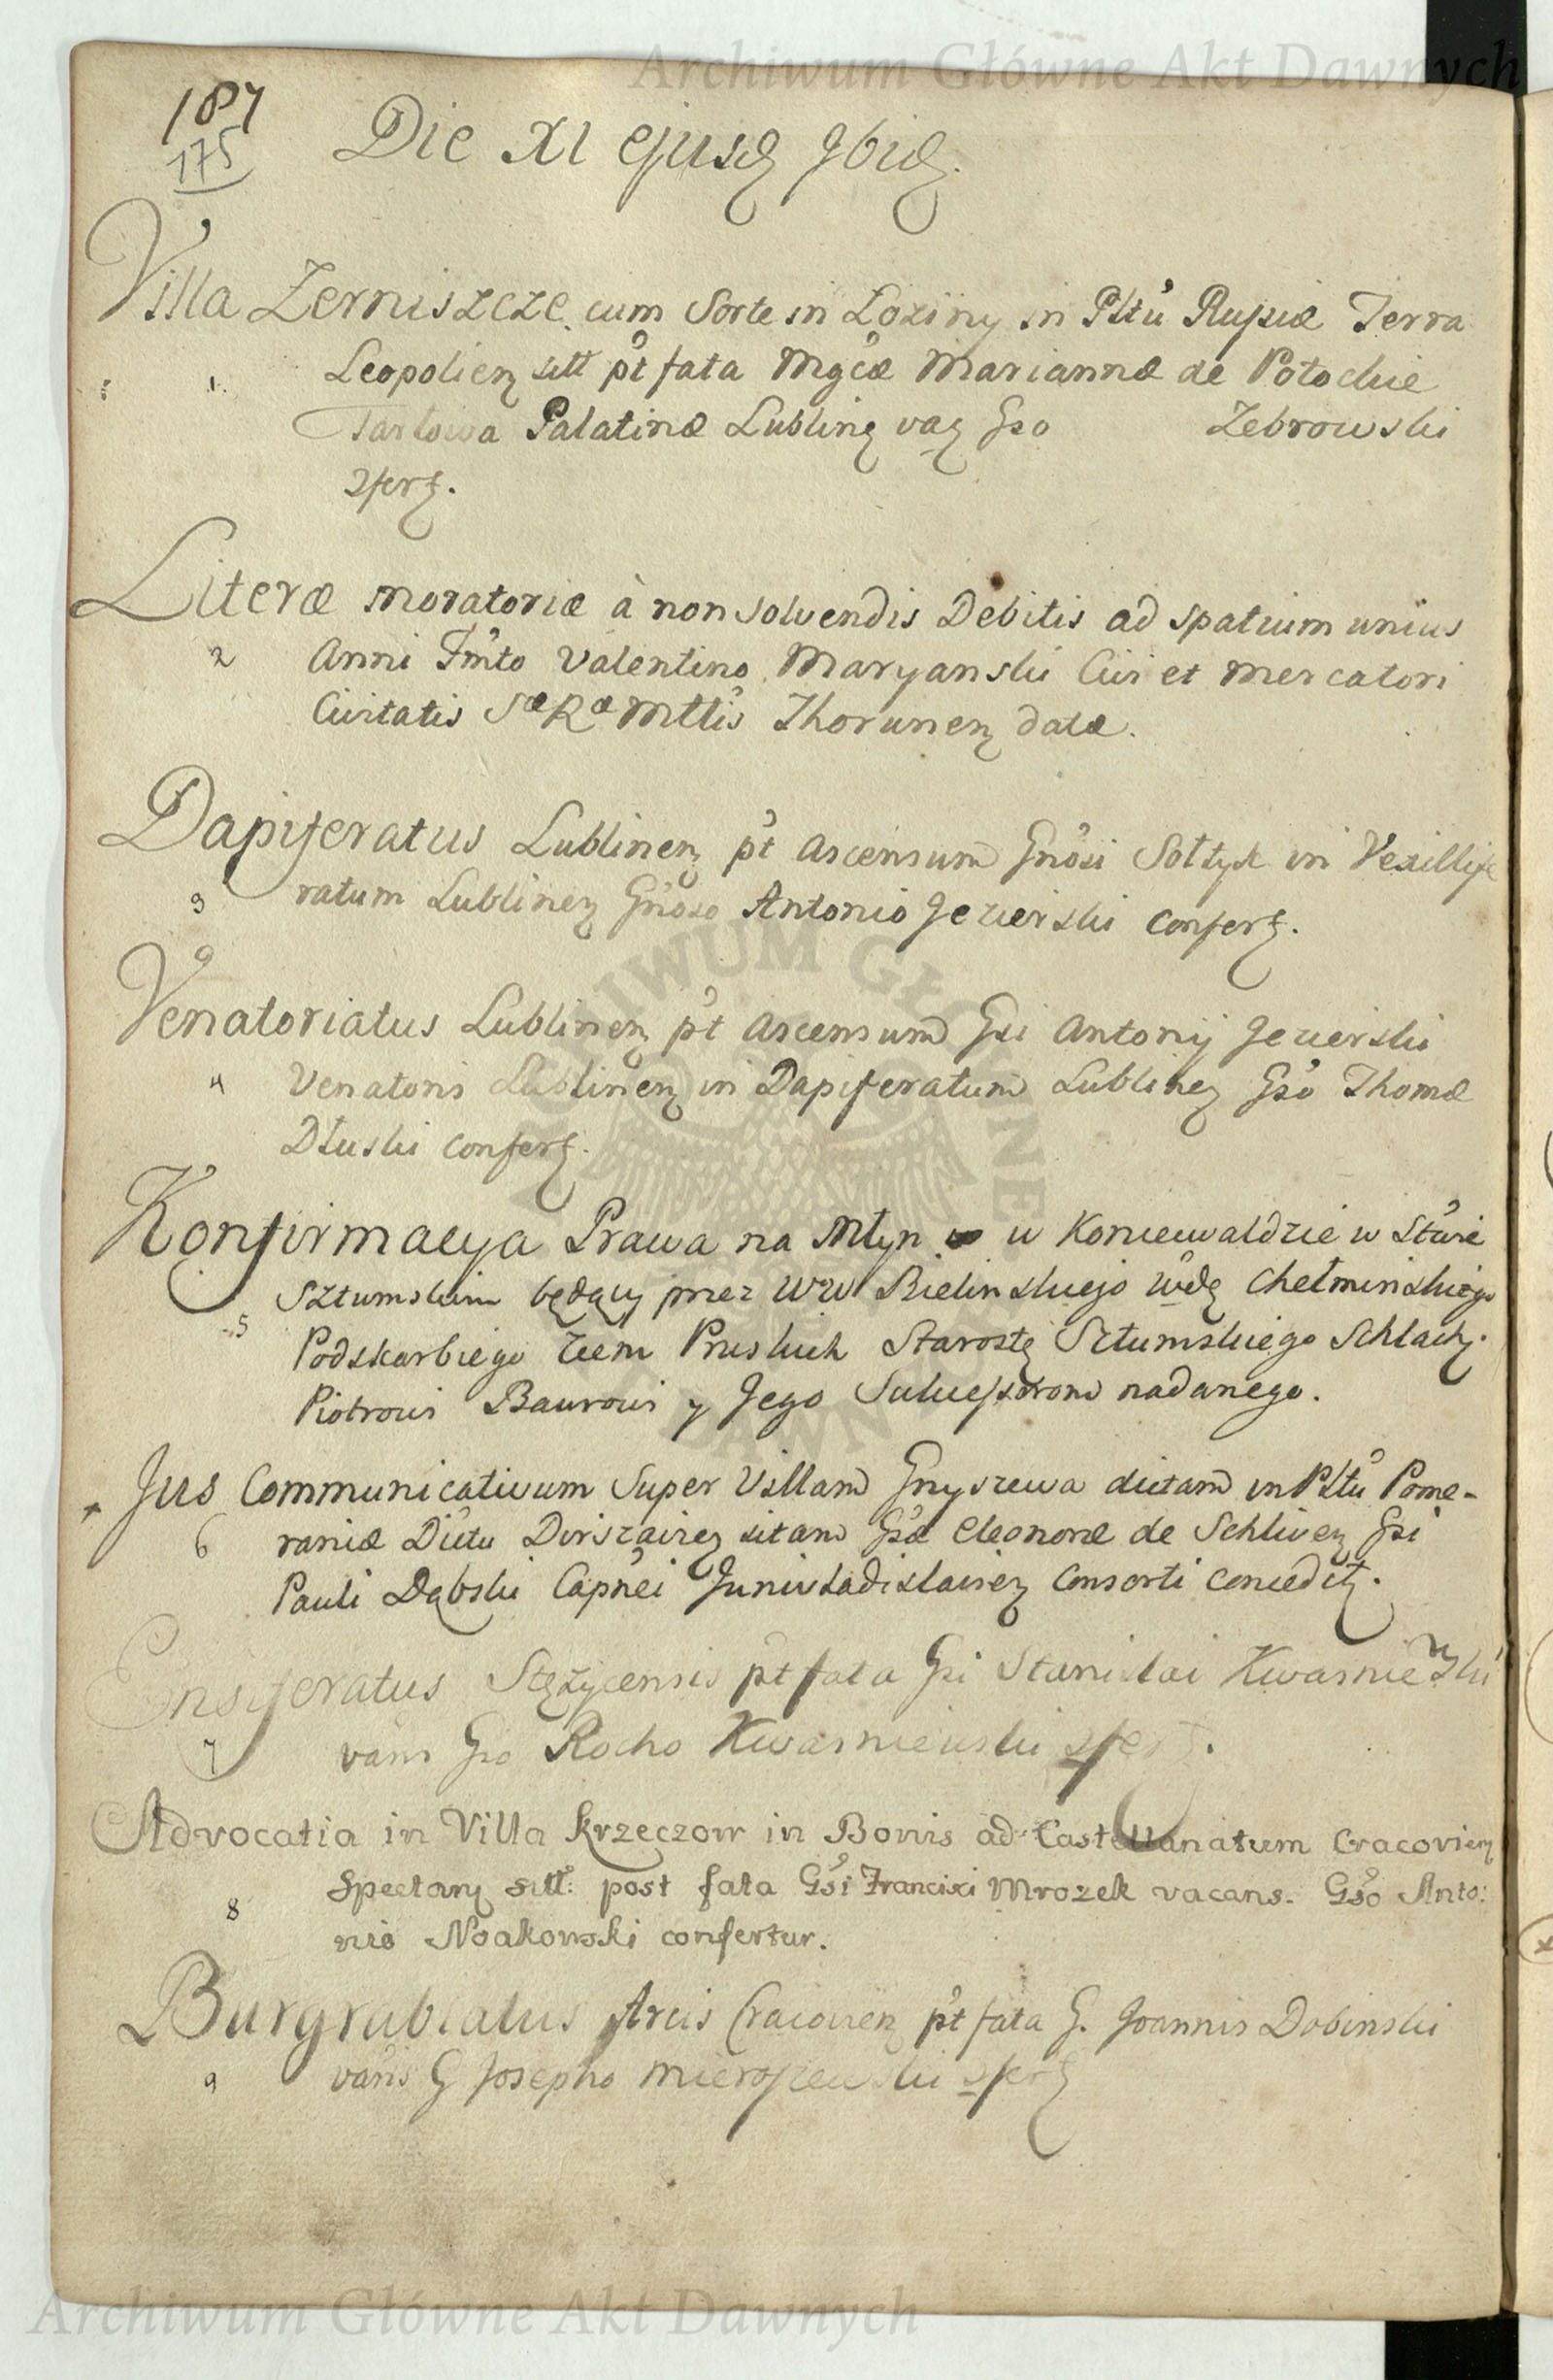 Archiwum Główne Akt Dawnych
187
175
Die XI ejusdę 9bidę.
Villa Zerniszcze cum Sorte in Loziny in Pltu Russiæ Terra
1. Leopolienȝ sitt pt fata Mgcæ Mariannæ de Potockie
Tarłowa Palatinæ Lublinȝ vaȝ Gso Zebrowski
2fertȝ.
Literæ moratoriæ à non solvendis Debitis ad spatium unius
2 Anni Fmto Valentino Maryanski Civi et Mercatori
Civitatis Sæ Ræ Mttis Thorunenȝ datæ.
Dapiferatus Lublinenȝ pt ascensum Gnosi Sołtyk in Vexillife
3 ratum Lublinenȝ Gnoso Antonio Jezierski confertȝ.
Venatoriatus Lublinenȝ pt ascensum Gsi Antonij Jezierski
4 Venatoris Lublinenȝ in Dapiferatum Lublinenȝ Gso Thomæ
Dłuski confertȝ.
Konfirmacya Prawa na Młyn w Koniewaldzie w Stwie
5 Sztumskim będący przez WW Bielinskiego Wdę Chełminskiego
Podskarbiego Ziem Pruskich Starostę Sztumskiego Schlach.
Piotrowi Baurowi y Jego Sukcessorom nadanego.
Jus Communicativum Super Villam Gnyszewa dictam in Pltu Pome-
6 raniæ Dictu Dirszavieȝ sitam Gsæ Eleonoræ de Schlivenȝ Gsi
Pauli Dąbski Capnei Junivladislavienȝ Consorti conceditȝ.
Ensiferatus Stężycensis pt fata Gsi Stanislai Kwasniewski
7 vans Gso Rocho Kwasniewski 2fertȝ.
Advocatia in Villa Krzeczow in Bonis ad Castellanatum Cracovienȝ
Spectanȝ sitt: post fata Gsi Francisci Mrozek vacans. Gso Anto:
8
nio Noakowski confertur.
Burgrabiatus Arcis Cracovienȝ pt fata G. Joannis Dobinski
9 vans G Josepho Mieroszewski 2fertȝ
Archiwum Główne Akt Dawnych